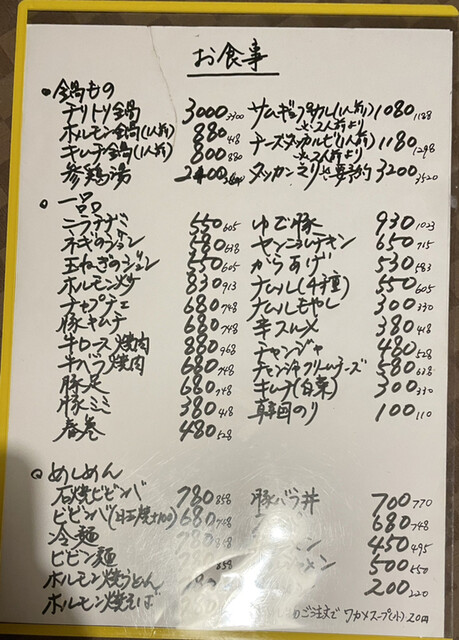 お食事
・鍋もの
チリトリ鍋 3000 3300
ホルモン鍋(1人前) 880
キムチ鍋(1人前) 800 880
参鶏湯
サムギョプサル(1人前) 1080 1188
※2人前より
チーズタッカルビ(1人前) 1180 1298
※2人前より
タッカンマリ※要予約 3200 3520
・一品
ニラチヂミ 550 605
ネギのジョン 580 638
玉ねぎのジョン 550 605
ホルモン炒 830 913
チャプチェ 680 748
豚キムチ 680 748
牛ロース焼肉 880 968
牛バラ焼肉 680 748
豚足 680 748
豚ミミ 380 418
春巻 480 528
ゆで豚 930 1023
ヤンニョムチキン 650 715
からあげ 530 583
ナムル(4種) 550 605
ナムルもやし 300 330
辛スルメ 380 418
チャンジャ 480 528
チャンジャクリームチーズ 580 638
キムチ(白菜) 300 330
韓国のり 100 110
○めしめん
石焼ビビンバ 780 858
ビビンバ(石焼+100) 680 748
冷麺
ビビン麺 858
ホルモン焼うどん
ホルモン焼そば
豚バラ丼 700 770
680 748
450 495
500 550
200 220
のご注文で ワカメスープ(小)20円